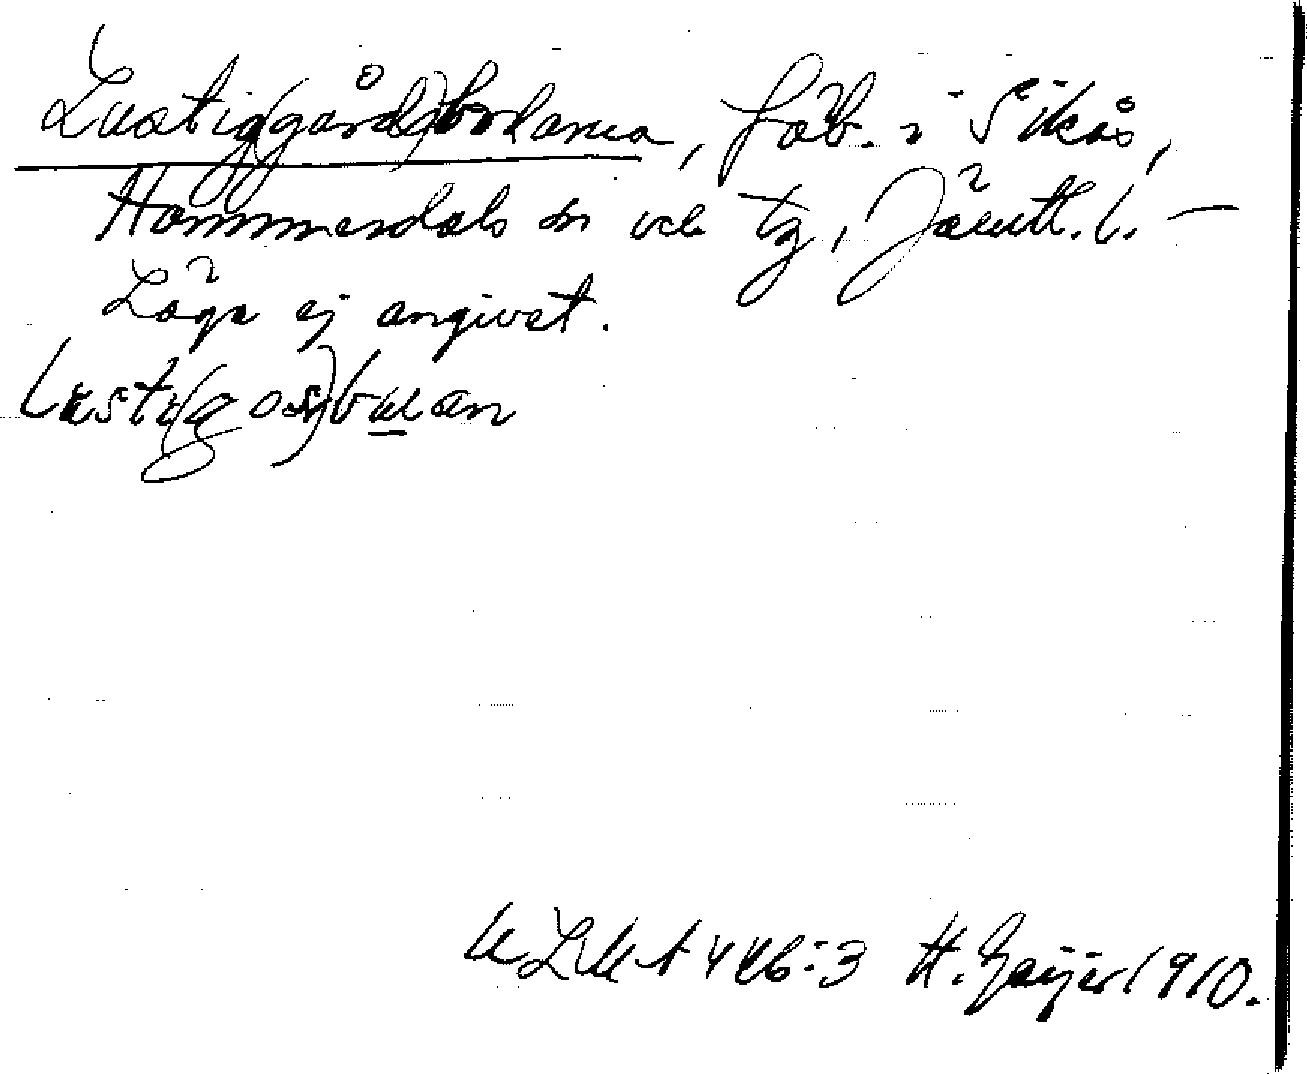 Lustig(gårds)bodarna, fäb. i Sikås,
Hammerdals sn och tg, Jämtl. l. —
Läge ej angivet.
Lusti(g os)buan
ULMA 446:3 H. Geijer 1910.